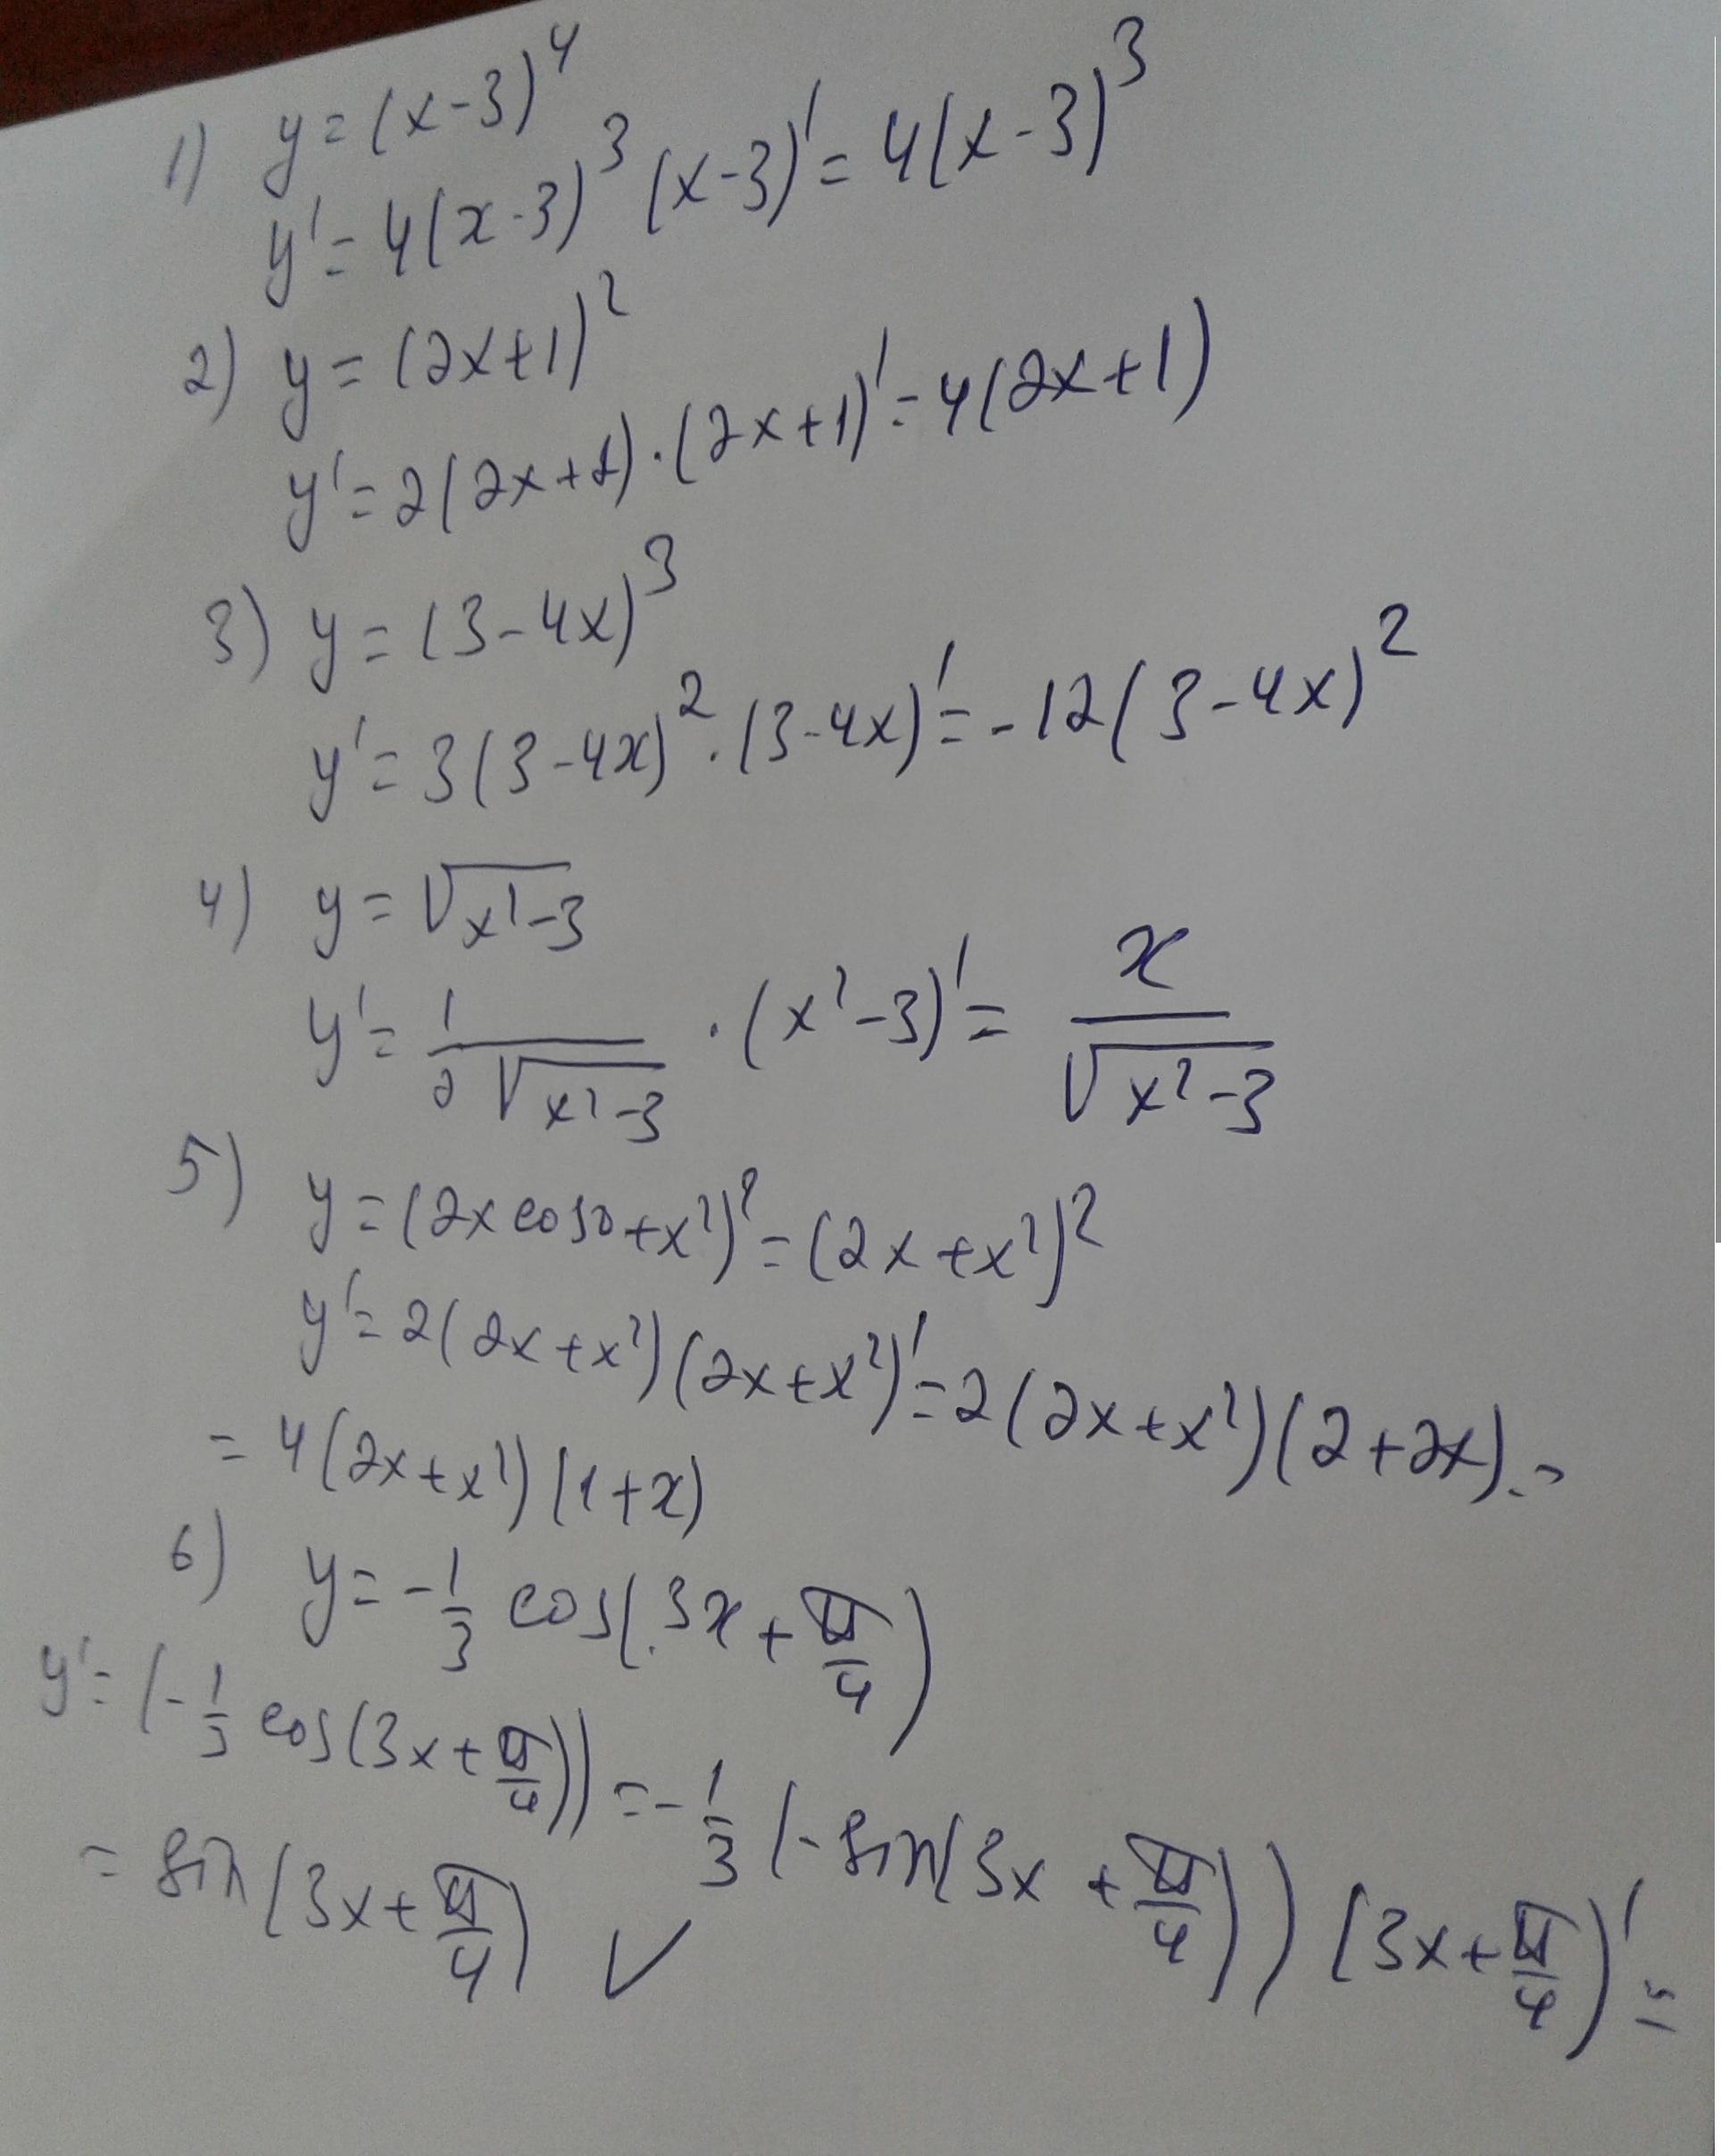 1) y = (x-3)⁴
y' = 4(x-3)³ (x-3)' = 4(x-3)³
2) y = (2x+1)²
y' = 2(2x+1)·(2x+1)' = 4(2x+1)
3) y = (3-4x)³
y' = 3(3-4x)²·(3-4x)' = -12(3-4x)²
4) y = √(x²-3)
y' = 1/(2√(x²-3)) · (x²-3)' = x/√(x²-3)
5) y = (2x cos0 + x²)² = (2x+x²)²
y' = 2(2x+x²)(2x+x²)' = 2(2x+x²)(2+2x) =
= 4(2x+x²)(1+x)
6) y = -1/3 cos(3x + π/4)
y' = (-1/3 cos(3x + π/4)) = -1/3 (-sin(3x + π/4)) (3x + π/4)' =
= sin(3x + π/4) √